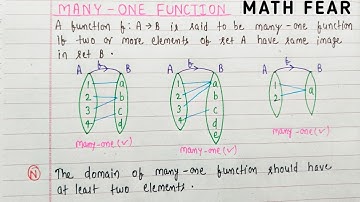 MANY-ONE FUNCTION MATH FEAR
A function f: A→B is said to be many-one function
If two or more elements of set A have same image
in set B.
A f B A f B A f B
1 2 3 4 a b c d
1 2 3 4 a b c d e
1 2 a
many-one (✓) many-one (✓) many-one (✓)
(N) The domain of many-one function should have
at least two elements.